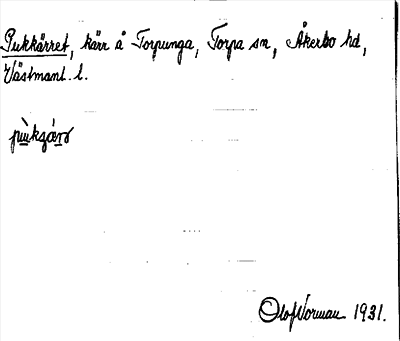 Pukkärret, kärr å Torpunga, Torpa sn, Åkerbo hd,
Västmanl. l.
Olof Norman 1931.